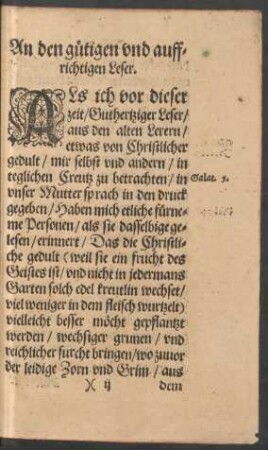 An den gütigen vnd auff-
richtigen Leser.
ALs ich vor dieser
zeit/Guthertziger Leser/
aus den alten Lerern/
etwas von Christlicher
gedult/mir selbst vnd andern/in
teglichen Creutz zu betrachten/in
Galat. 5.
vnser Mutter sprach in den druck
gegeben/Haben mich etliche fürne-
me Personen/als sie dasselbige ge-
lesen/erinnert/Das die Christli-
che gedult (weil sie ein frucht des
Geistes ist/vnd nicht in jedermans
Garten solch edel kreutlin wechset/
viel weniger in dem fleisch wurtzelt)
vielleicht besser möcht gepflantzt
werden/wechsiger grunen/vnd
reichlicher furcht bringen/wo zuuor
der leidige Zorn vnd Grim/aus
)( ij
dem